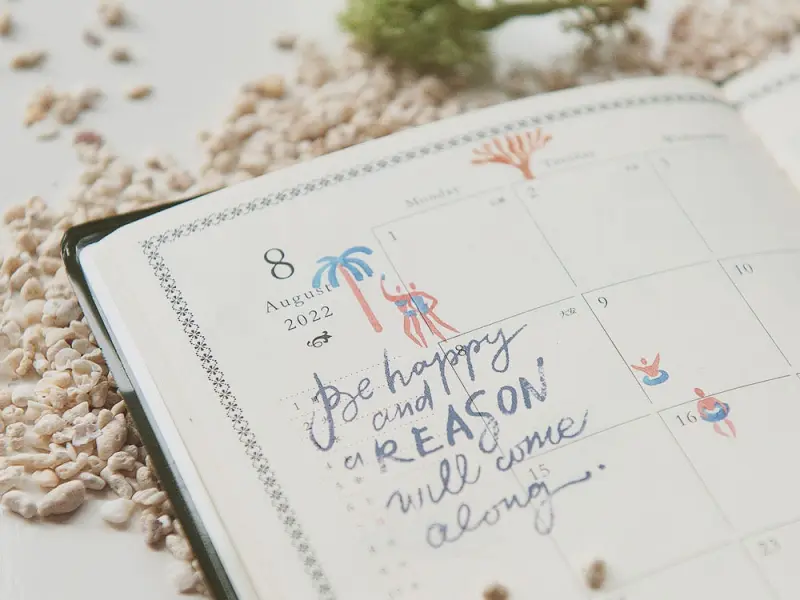 8
August
2022
Monday
Tuesday
1
2
3
8
9
10
15
16
23
Be happy
and
a REASON
will come
along.